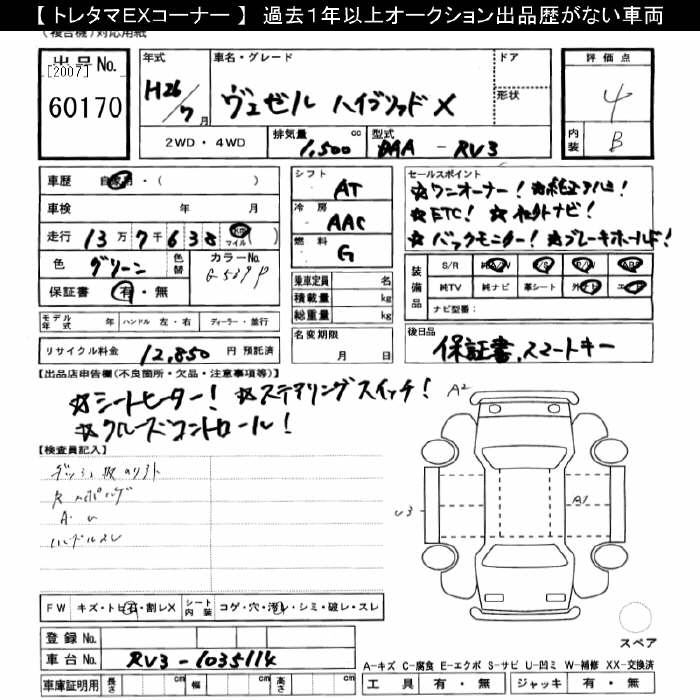 【 トレタマEXコーナー 】 過去1年以上オークション出品歴がない車両
(複合機)対応用紙
出品No.
[2007]
60170
年式
H26/7月
車名・グレード
ヴェゼル ハイブリッド X
ドア
形状
評価点
4
内装
B
2WD・4WD
排気量
1,500
cc
型式
DAA - RV3
車歴
自家用・( )
車検
年 月
走行
13万7千638
マイル( )
色
グリーン
色替
カラーNo.
保証書
有・無
シフト
AT
冷房
AAC
燃料
G
乗車定員
名
積載量
kg
総重量
kg
名変期限
月 日
セールスポイント
☆ワンオーナー! ☆純正アルミ!
☆ETC! ☆社外ナビ!
☆バックモニター! ☆ブレーキホールド!
装備品
S/R 純A/W P/S P/W ABS
純TV 純ナビ 革シート 外ナビ エアB
ナビ型番:
モデル年式
年
ハンドル
左・右
ディーラー・並行
リサイクル料金
12,850
円 預託済
後日品
保証書、スマートキー
【出品店申告欄(不良箇所・欠品・注意事項等)】
☆シートヒーター! ☆ステアリングスイッチ!
☆クルーズコントロール!
【検査員記入】
ハンドルスレ
A2
A1
U3
FW
キズ・トビ石・割レX
シート内装
コゲ・穴・汚レ・シミ・破レ・スレ
登録No.
車台No.
RV3-1035114
車庫証明用
長さ
cm
幅
cm
高さ
cm
スペア
A-キズ C-腐食 E-エクボ S-サビ U-凹ミ W-補修 XX-交換済
工具
有・無
ジャッキ
有・無